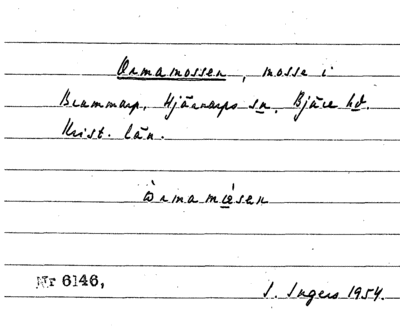 Ormamossen, mosse i
Brammarp, Hjärnarps sn, Bjäre hd.
Krist. län.
òrmamåsen
Nr 6146,
I. Ingers 1954.